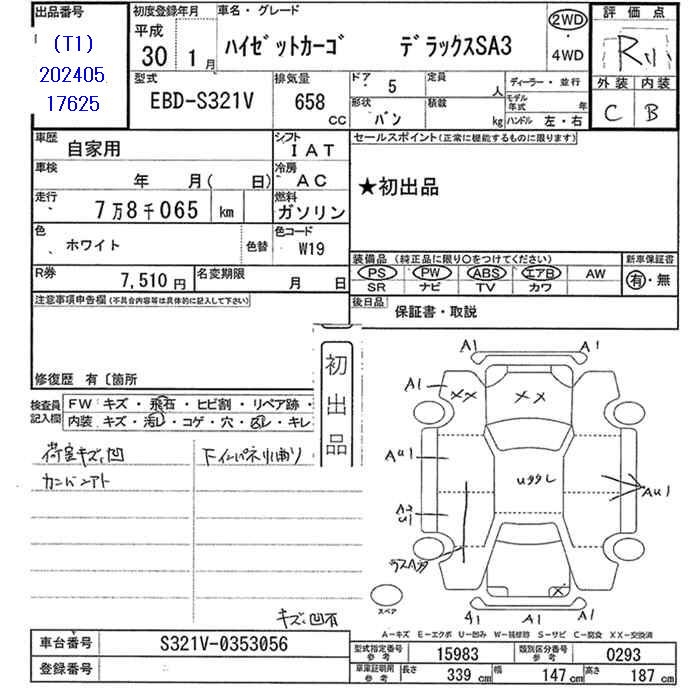 出品番号
(T1)
202405
17625
初度登録年月
平成
30 1月
車名・グレード
ハイゼットカーゴ デラックスSA3
2WD
・
4WD
評価点
R小
外装 内装
C B
型式
EBD-S321V
排気量
658
CC
ドア 5
定員 人
形状 バン
積載 kg
ディーラー・並行
モデル年式 年
ハンドル 左・右
車歴
自家用
シフト
IAT
車検
年 月( 日)
冷房
AC
走行
7万8千065 km
燃料
ガソリン
色
ホワイト
色替
色コード
W19
R券
7,510円
名変期限
月 日
セールスポイント(正常に機能するものに限ります)
★初出品
装備品 (純正品に限り○をつけてください)
PS PW ABS エアB AW
SR ナビ TV カワ
新車保証書
有・無
後日品
保証書・取説
注意事項申告欄(不具合内容等は具体的に記入して下さい)
修復歴 有〔箇所
初出品
検査員
記入欄
FW キズ・飛石・ヒビ割・リペア跡・
内装 キズ・汚レ・コゲ・穴・凹レ・キレ
荷室キズ凹
カンバンアト
下インパネ小曲り
キズ凹有
A1 A1
A1
XX
XX
AU1
A2
U1
UググL
AU1
ラスAタ
X
スペア
A1 A1 A1
A-キズ E-エクボ U-凹み W-補修跡 S-サビ C-腐食 XX-交換済
車台番号
S321V-0353056
登録番号
型式指定番号
参考
15983
類別区分番号
参考
0293
車庫証明用
参考
長さ 339 cm
幅 147 cm
高さ 187 cm